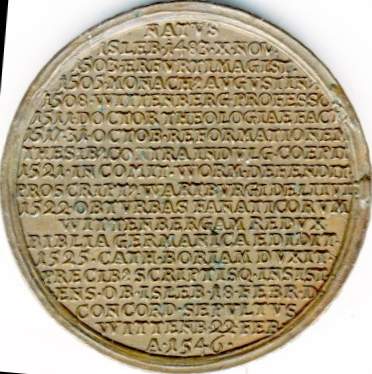 NATVS
ISLEB·1483·X·NOV·
1503·ERFVRTI·MAGIST·
1505·MONACH9·AVGVSTIN9
1508·WITTENBERG·PROFESSO
1511·DOCTOR THEOLOGIAE FACT
1517·31·OCTOB·REFORMATIONEM
THESIB9 CONTRA INDVLG·COEPIT
1521·IN COMIT·WORM·DEFENDIT
PROSCRIPT9 WARTBVRGI DELITVIT
1522·OB TVRBAS FANATICORVM
WITTENBERGAM REDVX
BIBLIA GERMANICA EDIDIT·
1525·CATH·BORIAM DVXIT·
PRECIB9 SCRIPTISQ·INSIST
ENS·OB·ISLEB·18·FEBR·D
CONCORD·SEPVLTVS
WITTENB·22·FEB
A·1546·